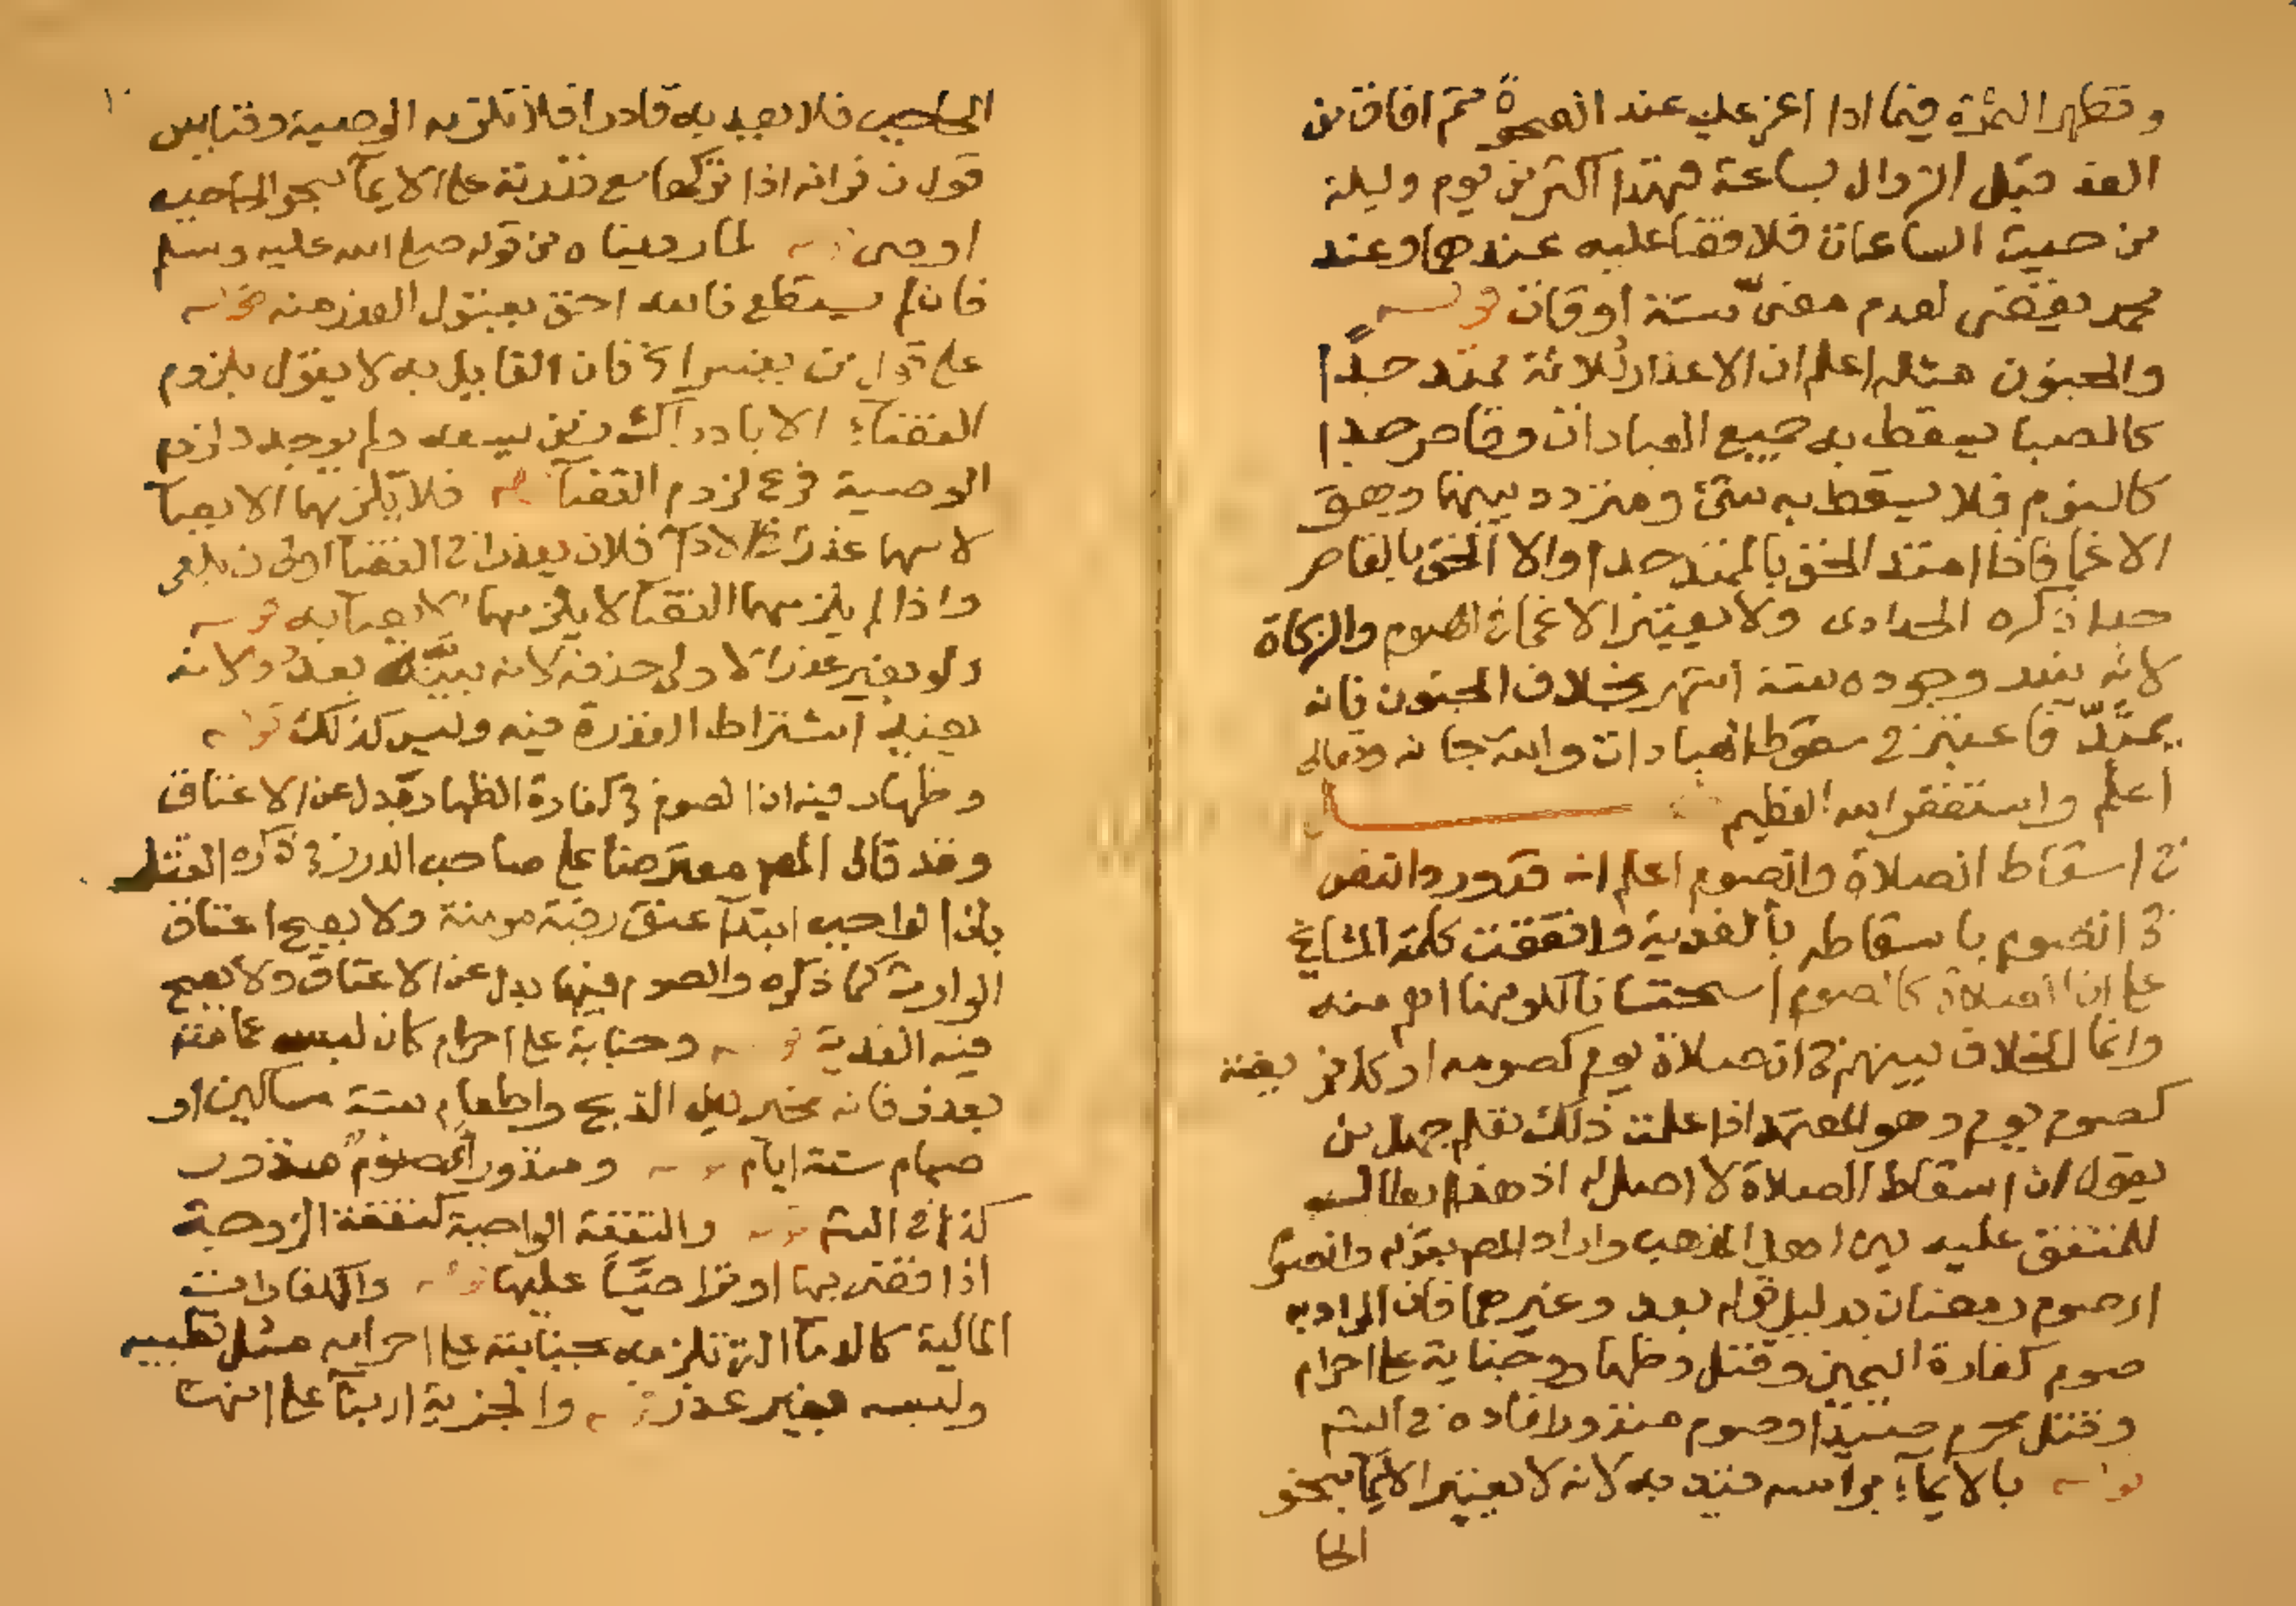 وتظهر الثمرة فيما اذا اغمى عليه عند الضحوة ثم افاق من
الغد قبل الزوال بساعة فهذا اكثر من يوم وليلة
من حيث الساعات فلا قضا عليه عندهما وعند
محمد يقضى لعدم مضى ستة اوقات قوله
والجنون مثله اعلم ان الاعذار ثلاثة ممتد جدًا
كالصبا يسقط به جميع العبادات وقاصر جدا
كالنوم فلا يسقط به شئ ومتردد بينهما وهو
الاغما فاذا امتد الحق بالممتد جدا والا الحق بالقاصر
جدا ذكره الحدادى ولا يعتبر الاغما فى الصوم والزكاة
لانه يندر وجوده ستة اشهر بخلاف الجنون فانه
يمتدّ فاعتبر فى سقوط العبادات والله سبحانه وتعالى
اعلم واستغفر الله العظيم
فى اسقاط الصلاة والصوم اعلم انه قد ورد النص
فى الصوم باسقاطه بالفدية واتفقت كلمة المشايخ
على ان الصلاة كالصوم استحسانا لكونها اهم منه
وانما الخلاف بينهم فى ان صلاة يوم كصومه او كل فريضة
كصوم يوم وهو المعتمد اذا علمت ذلك تعلم جهل من
يقول ان اسقاط الصلاة لا اصل له اذ هذا ابطال
للمتفق عليه بين اهل المذهب واراد المص بقوله والصوم
اى صوم رمضان بدليل قوله بعد وغيرهما فان المراد به
صوم كفارة اليمين وقتل وظهار وجناية على احرام
وقتل محرم صيدا وصوم منذور افاده فى الشر
قوله بالايماء براسه قيد به لانه لا يعتبر الايما بنحو
الحا
الحاجب فلا يعد به قادرا فلا تلزمه الوصية وقياس
قول زفر انه اذا تركها مع قدرته على الايما بنحو الحاجب
اوصى قوله لما رويناه من قوله صلى الله عليه وسلم
فان لم يستطع فالله احق بقبول العذر منه قوله
على قول من يفسر الخ فان القايل به لا يقول بلزوم
القضاء الا بادراك زمن يسعه ولم يوجد ولزوم
الوصية فرع لزوم القضا قوله فلا يلزمهما الايصا
لانهما عذرا فى الادا فلان يعذرا فى القضا اولى زيلعى
واذا لم يلزمهما القضا لا يلزمهما الايصا به قوله
ولو بغير عذر الاولى حذفه لانه بينه بعد ولانه
يفيد اشتراط القدرة فيه وليس كذلك قوله
وظهار فيه ان الصوم فى كفارة الظهار بدل عن الاعتاق
وقد قال المص معترضا على صاحب الدرر فى ذكره القتل
بان الواجب ابتدآ عتق رقبة مومنة ولا يصح اعتاق
الوارث كما ذكره والصوم فيها بدل عن الاعتاق ولا يصح
فيه الفدية قوله وجناية على احرام كان لبس عمامة
بعذر فانه مخير بين الذبح واطعام ستة مساكين او
صيام ستة ايام قوله ومنذور اى صوم منذور
كذا فى الشر قوله والنفقة الواجبة كنفقة الزوجة
اذا قضى بها او تراضيا عليها قوله والكفارات
المالية كالدما التى تلزمه بجنايته على احرامه مثل تطييبه
ولبسه بغير عذر قوله والجزية اى بنآ على انها
١٠